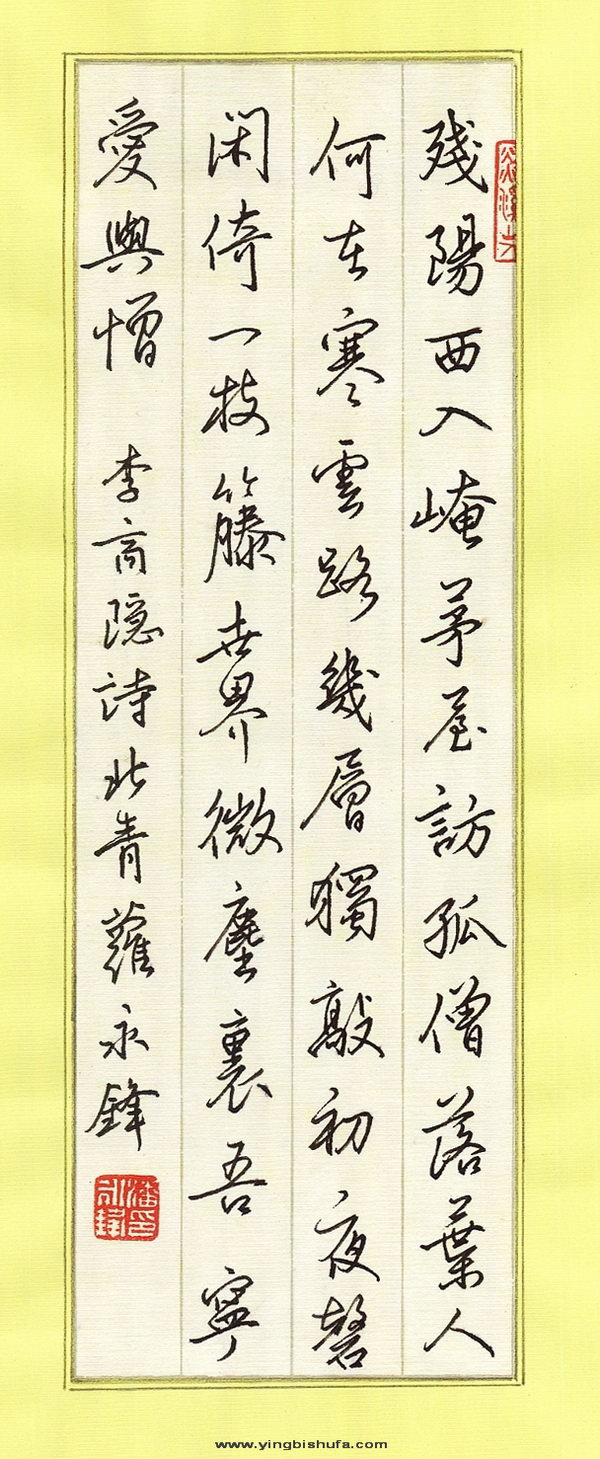 残陽西入崦茅屋訪孤僧落葉人
何在寒雲路幾層獨敲初夜磬
闲倚一枝籐世界微塵裏吾寧
愛與憎 李商隐詩北青蘿永鋒
潘永鋒印
www.yingbishufa.com